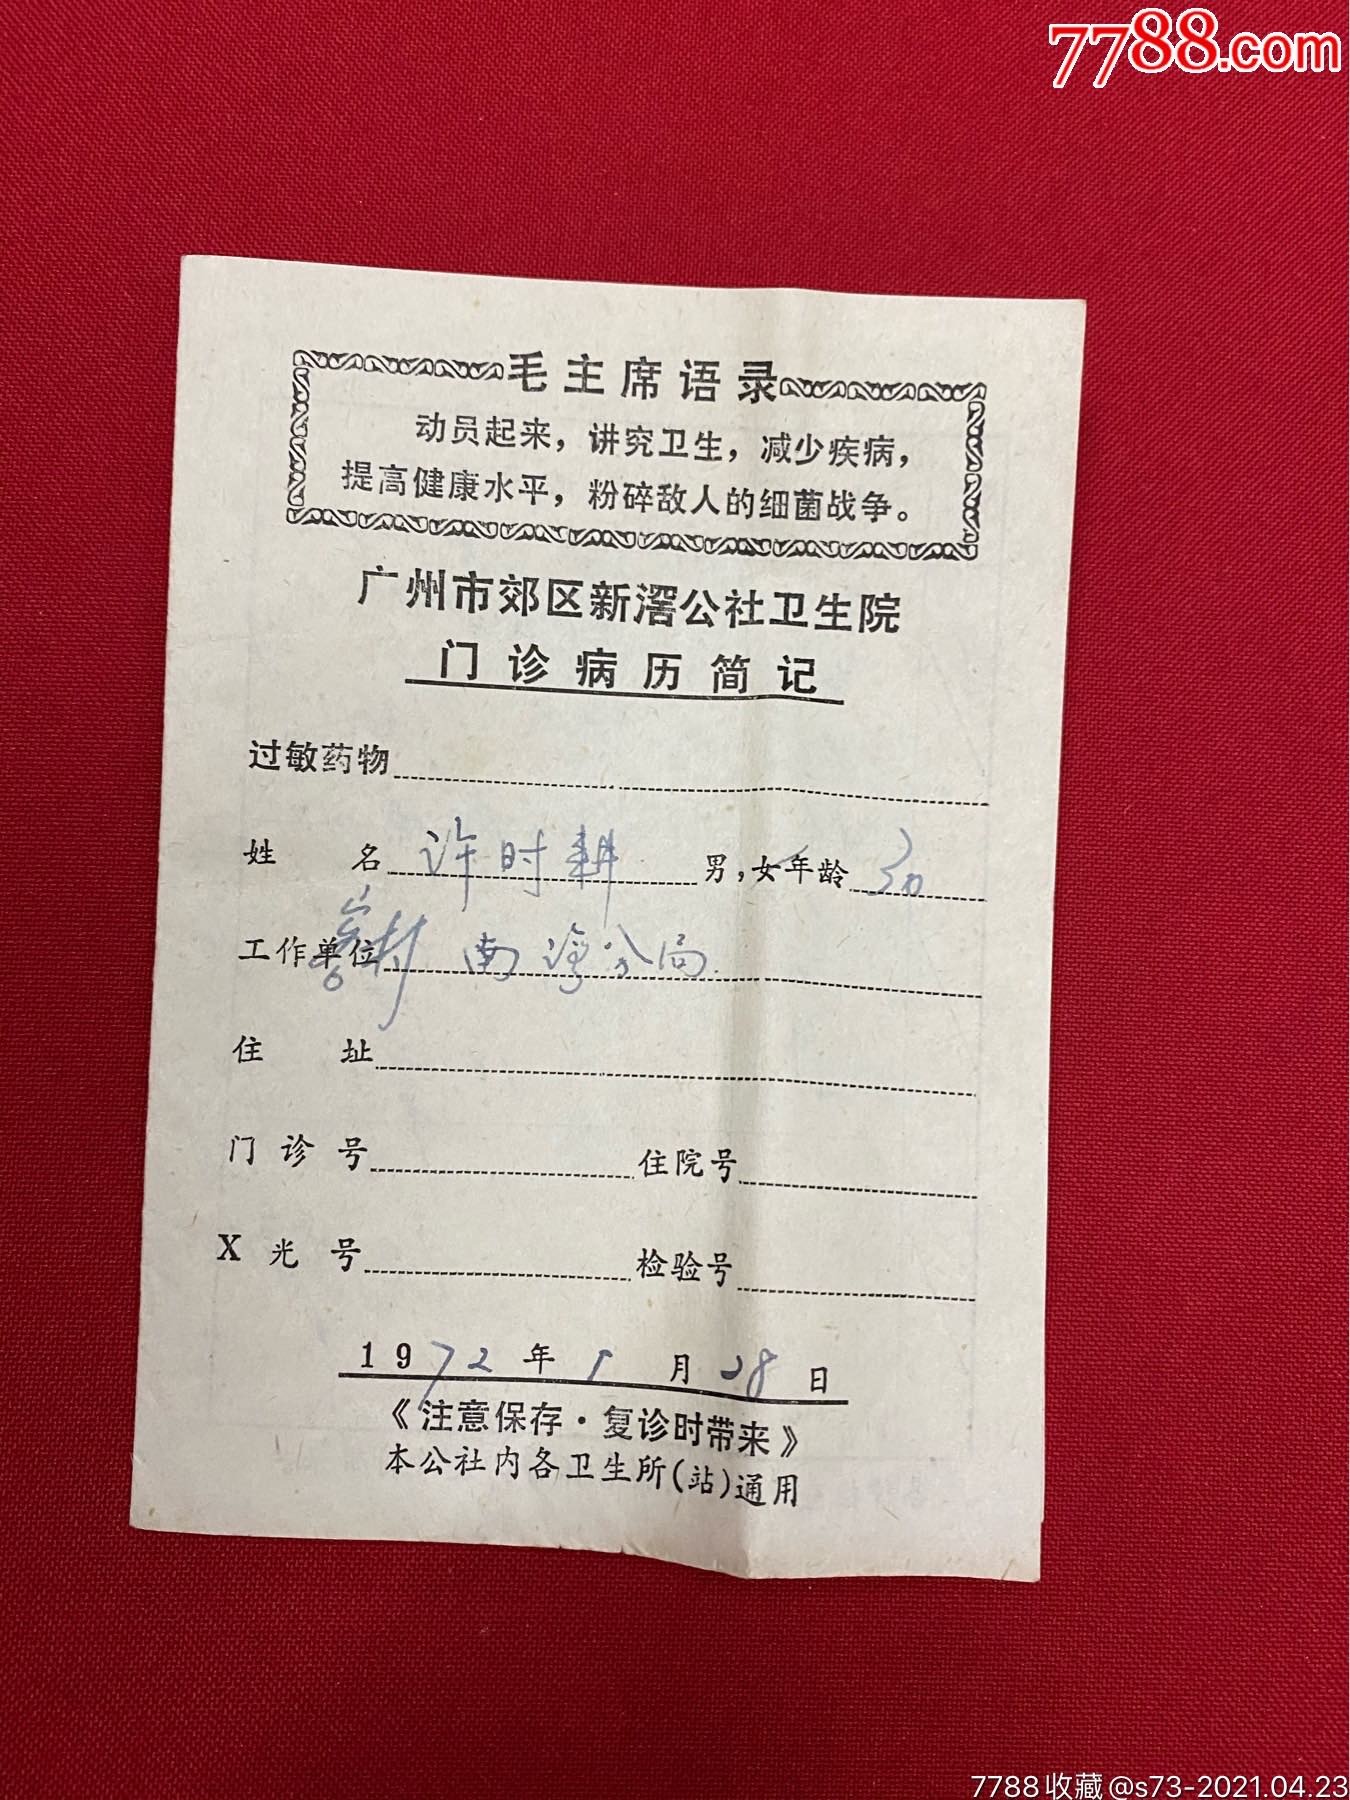 7788.com
毛主席语录
动员起来，讲究卫生，减少疾病，
提高健康水平，粉碎敌人的细菌战争。
广州市郊区新滘公社卫生院
门诊病历简记
过敏药物
姓名 许时耕 男，女 年龄 30
工作单位 村 南海分局
住址
门诊号 住院号
X光号 检验号
1972年1月28日
《注意保存·复诊时带来》
本公社内各卫生所(站)通用
7788收藏@s73-2021.04.23